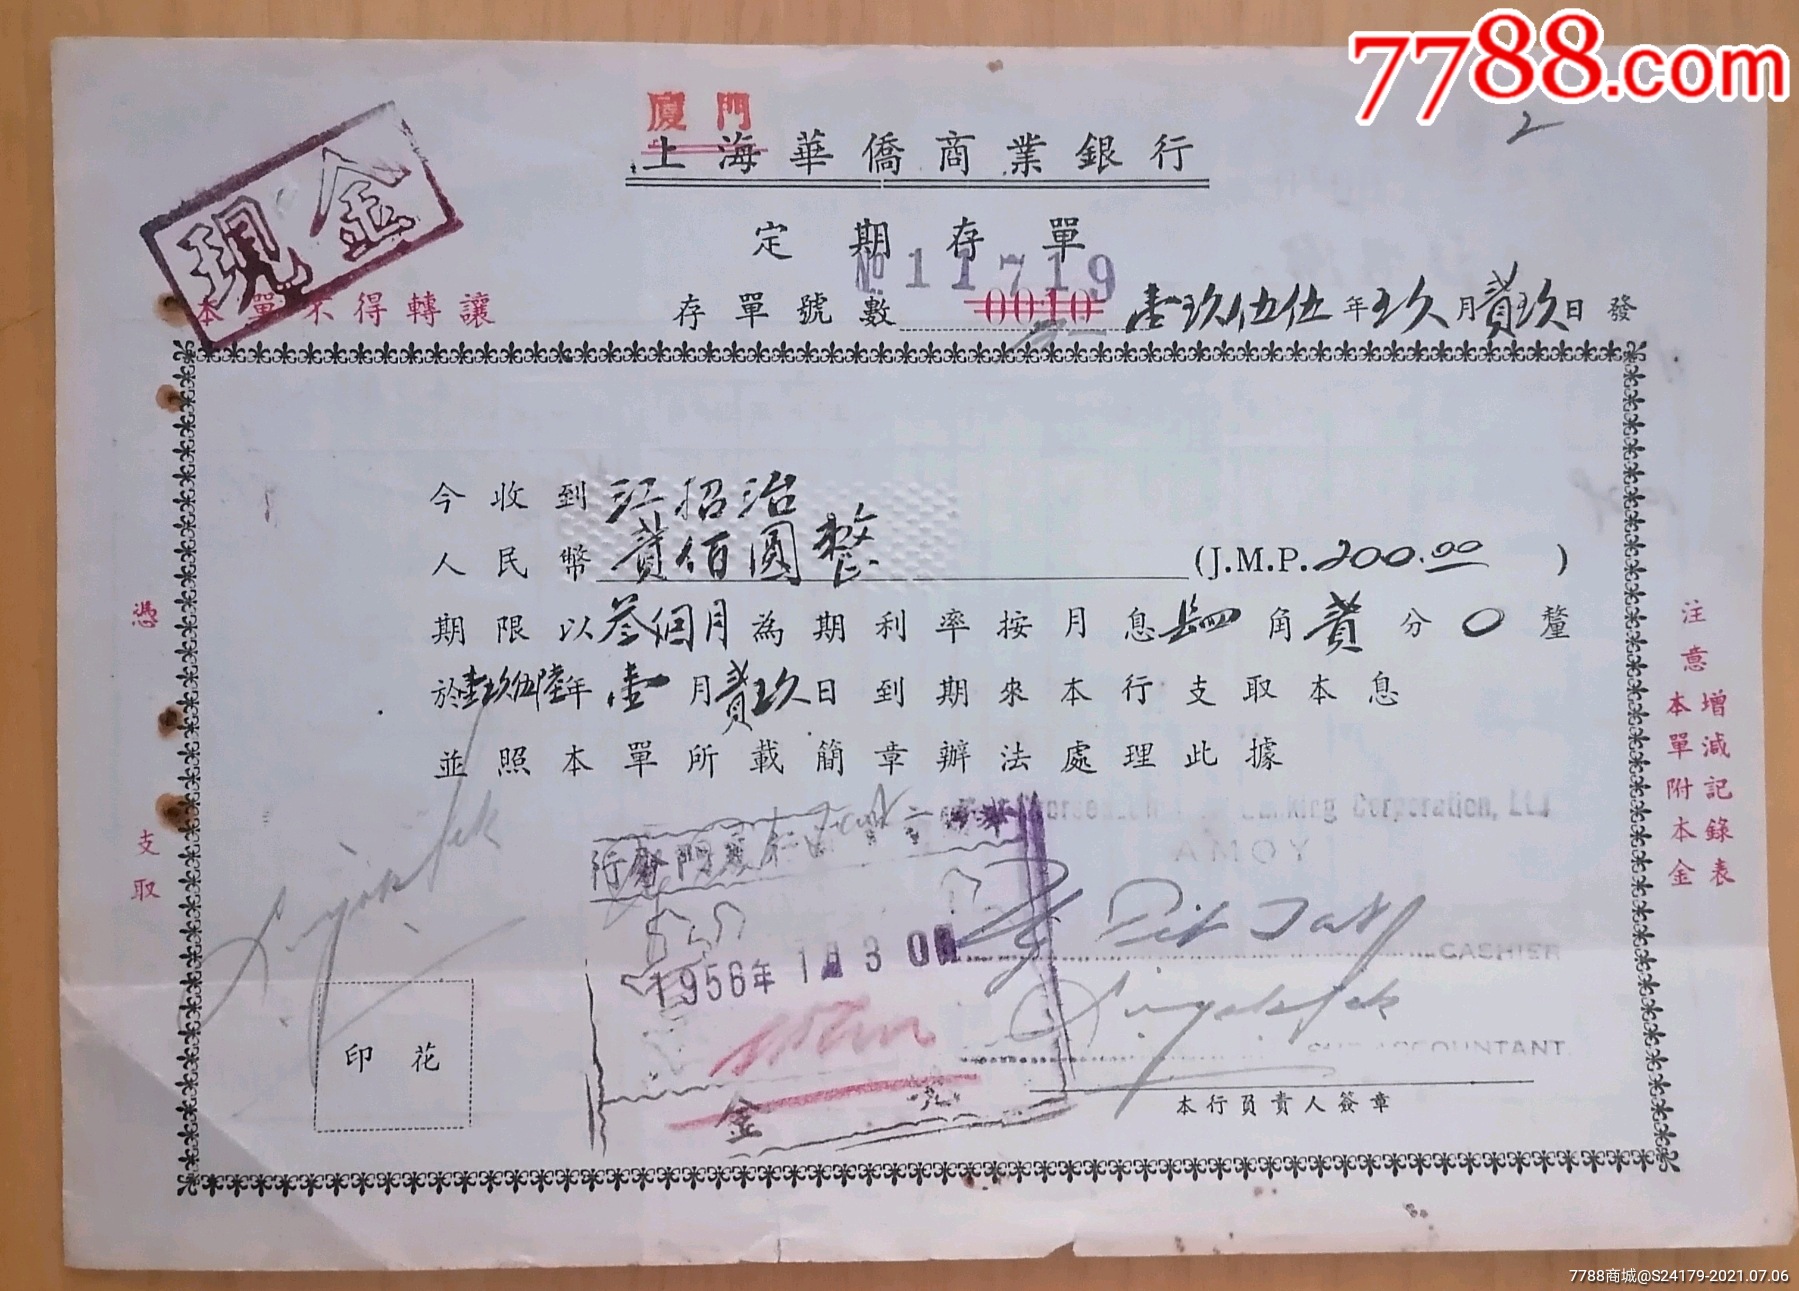 7788.com
2
廈門
上海華僑商業銀行
現金
定期存單
№ 11719
本單不得轉讓
存單號數 0010 壹玖伍伍年玖月貳玖日發
今收到江招治
人民幣貳佰圓整 (J.M.P. 200.00 )
期限以叁個月為期利率按月息 角貳分0釐
於壹玖伍陸年壹月貳玖日到期來本行支取本息
並照本單所載簡章辦法處理此據
憑
支取
注意
增減記錄表
本單附本金
Banking Corporation, Ltd
AMOY
行 門廈
1956年1 30
CASHIER
ACCOUNTANT.
印花
金
本行負責人簽章
7788商城@S24179-2021.07.06